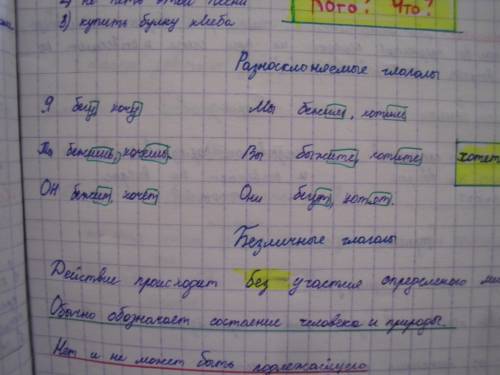 2) не петь этой песни
3) купить булку хлеба
Кого? Что?
Разносклоняемые глаголы
Я бегу хочу Мы бежим, хотим
Ты бежишь, хочешь. Вы бежите, хотите хотет
Он бежит хочет Они бегут, хотят.
Безличные глаголы
Действие происходит без участия определеного
Обычно обозначает состояние человека и природы.
Нет и не может быть подлежащего